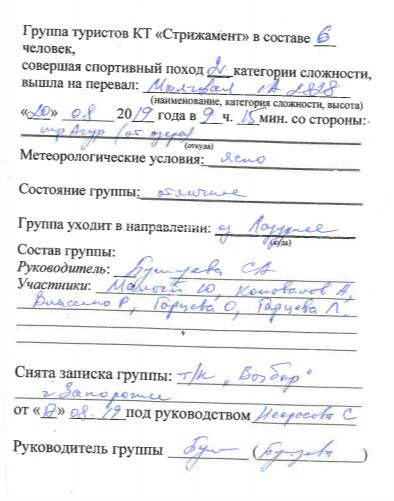 Группа туристов КТ «Стрижамент» в составе 6
человек,
совершая спортивный поход 2 категории сложности,
вышла на перевал: 1А 2828
(наименование, категория сложности, высота)
«20» 08 2019 года в 9 ч. 15 мин. со стороны:
пер Агур (от озера)
(откуда)
Метеорологические условия: ясно
Состояние группы: отличное
Группа уходит в направлении: оз
(куда)
Состав группы:
Руководитель: СА
Участники: Ю, Коновалов А,
Власенко Р, Гарцева О, Гарцева Л.
Снята записка группы: т/к
г Запорожье
от « » 08.19 под руководством Некрасова С
Руководитель группы ( )